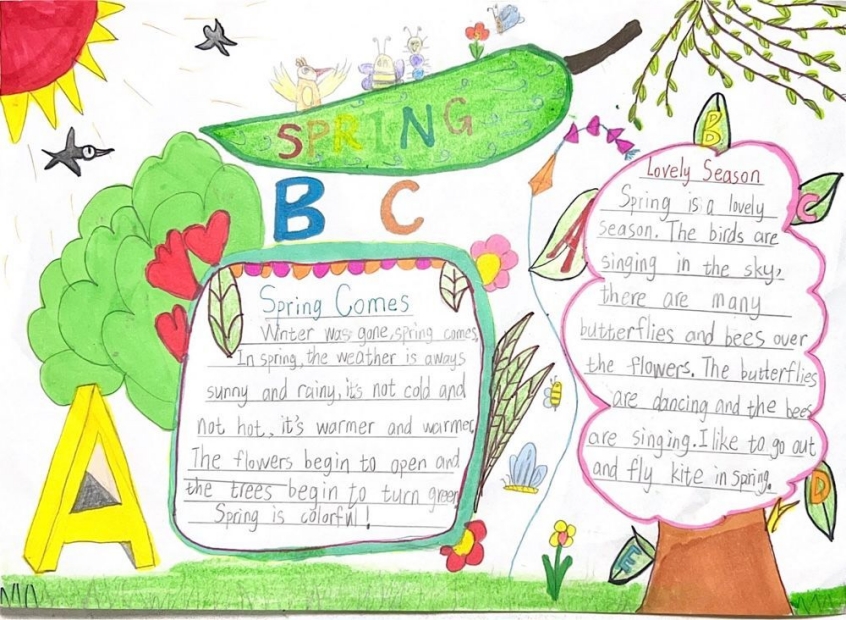 SPRING
B C
A
Spring Comes
Winter was gone, spring comes,
In spring, the weather is aways
sunny and rainy, it's not cold and
not hot, it's warmer and warmer.
The flowers begin to open and
the trees begin to turn green
Spring is colorful!
B
C
A
Lovely Season
Spring is a lovely
season. The birds are
singing in the sky,
there are many
butterflies and bees over
the flowers. The butterflies
are dancing and the bees
are singing. I like to go out
and fly kite in spring.
D
E